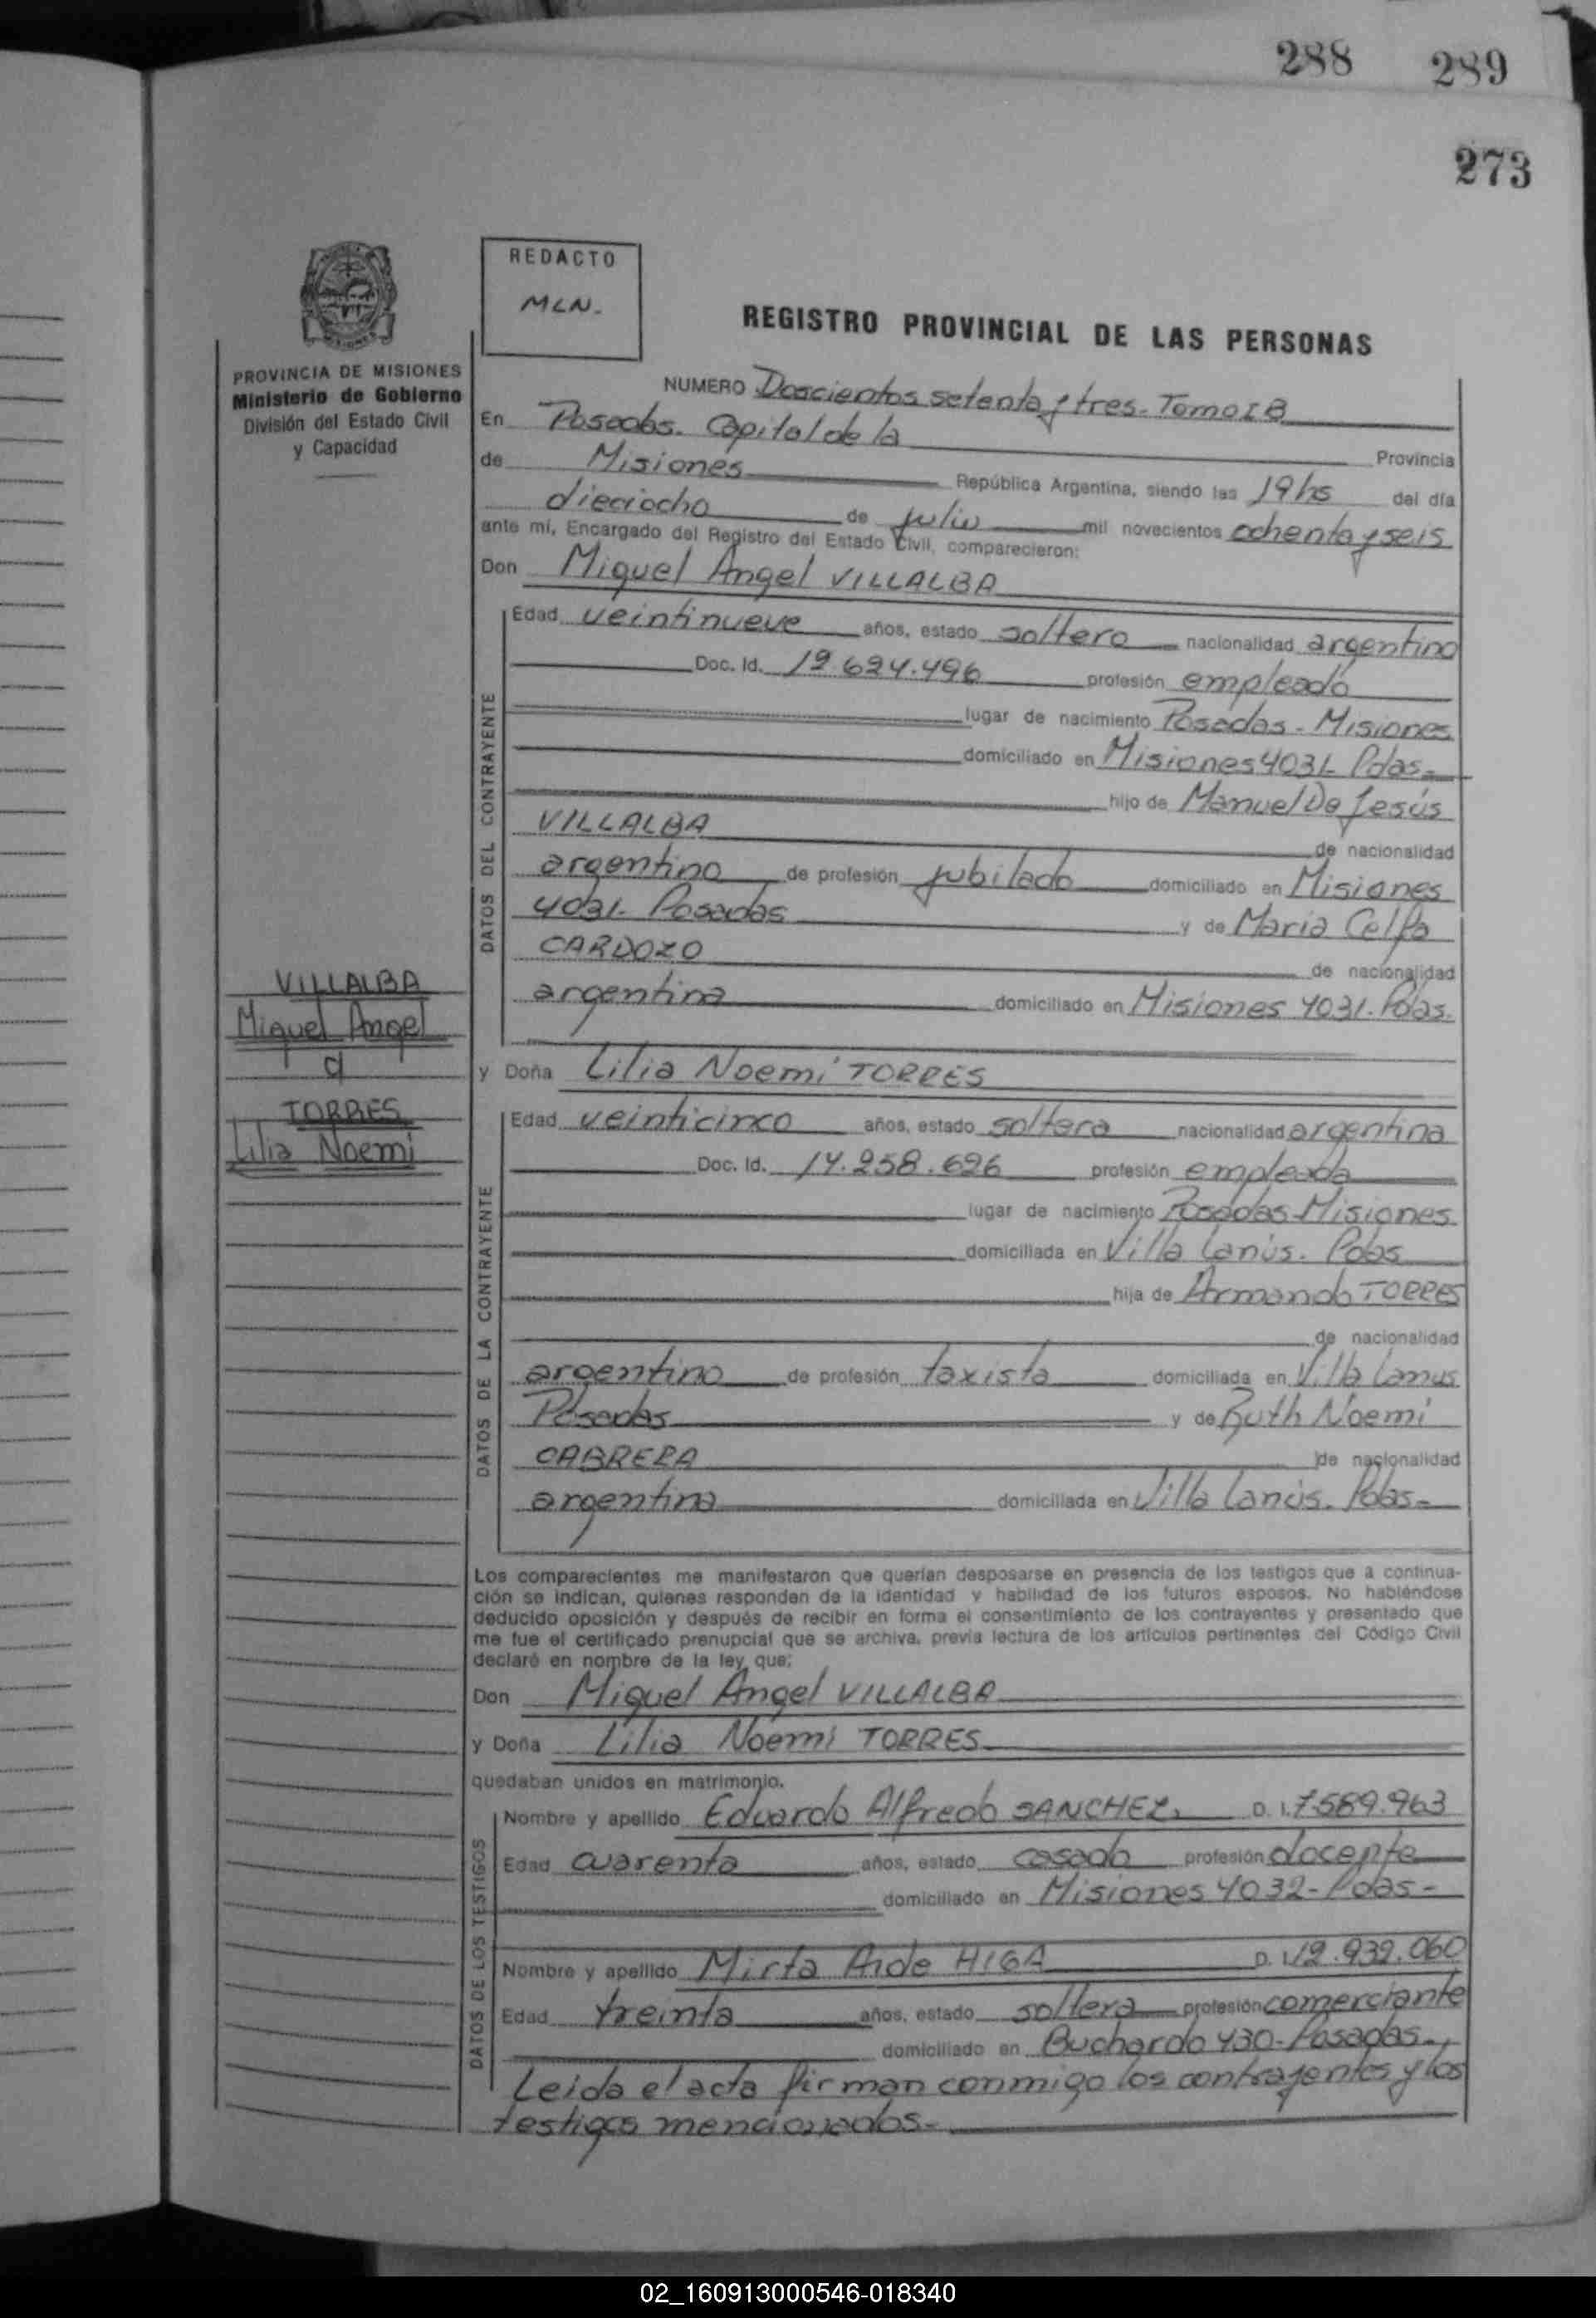 288 289
273
REDACTO
MLN.
REGISTRO PROVINCIAL DE LAS PERSONAS
PROVINCIA DE MISIONES
Ministerio de Gobierno
División del Estado Civil
y Capacidad
NUMERO Doscientos setenta y tres. Tomo I B
En Posadas. Capital de la Provincia
de Misiones República Argentina, siendo las 19 hs del día
dieciocho de julio mil novecientos ochenta y seis
ante mí, Encargado del Registro del Estado Civil, comparecieron:
Don Miguel Angel VILLALBA
DATOS DEL CONTRAYENTE
Edad veintinueve años, estado soltero nacionalidad argentino
Doc. Id. 12.624.496 profesión empleado
lugar de nacimiento Posadas - Misiones
domiciliado en Misiones 4031- Pdas-
hijo de Manuel De Jesús
VILLALBA de nacionalidad
argentino de profesión jubilado domiciliado en Misiones
4031- Posadas y de Maria Celfa
CARDOZO de nacionalidad
argentina domiciliado en Misiones 4031. Pdas.
VILLALBA
Miguel Angel
c/
TORRES
Lilia Noemi
y Doña Lilia Noemí TORRES
DATOS DE LA CONTRAYENTE
Edad veinticinco años, estado soltera nacionalidad argentina
Doc. Id. 14.258.626 profesión empleada
lugar de nacimiento Posadas-Misiones
domiciliada en Villa Lanús. Pdas
hija de Armando TORRES
de nacionalidad
argentino de profesión taxista domiciliada en Villa Lanus
Posadas y de Ruth Noemí
CABRERA de nacionalidad
argentina domiciliada en Villa Lanús. Pdas-
Los comparecientes me manifestaron que querían desposarse en presencia de los testigos que a continua-
ción se indican, quienes responden de la identidad y habilidad de los futuros esposos. No habiéndose
deducido oposición y después de recibir en forma el consentimiento de los contrayentes y presentado que
me fue el certificado prenupcial que se archiva, previa lectura de los artículos pertinentes del Código Civil
declaré en nombre de la ley, que:
Don Miguel Angel VILLALBA
y Doña Lilia Noemí TORRES
quedaban unidos en matrimonio.
DATOS DE LOS TESTIGOS
Nombre y apellido Eduardo Alfredo SANCHEZ. D. I. 7.589.963
Edad cuarenta años, estado casado profesión docente
domiciliado en Misiones 4032-Pdas-
Nombre y apellido Mirta Aide HIGA D. I. 12.932.060
Edad treinta años, estado soltera profesión comerciante
domiciliado en Buchardo 430-Posadas-
Leida el acta firman conmigo los contrayentes y los
testigos mencionados-
02_160913000546-018340